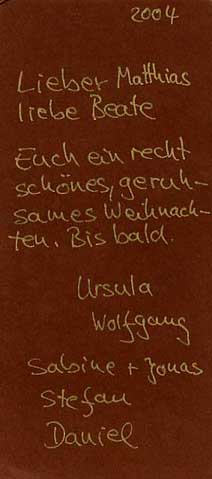 2004
Lieber Matthias
liebe Beate
Euch ein recht
schönes, geruh-
sames Weihnach-
ten. Bis bald.
Ursula
Wolfgang
Sabine + Jonas
Stefan
Daniel